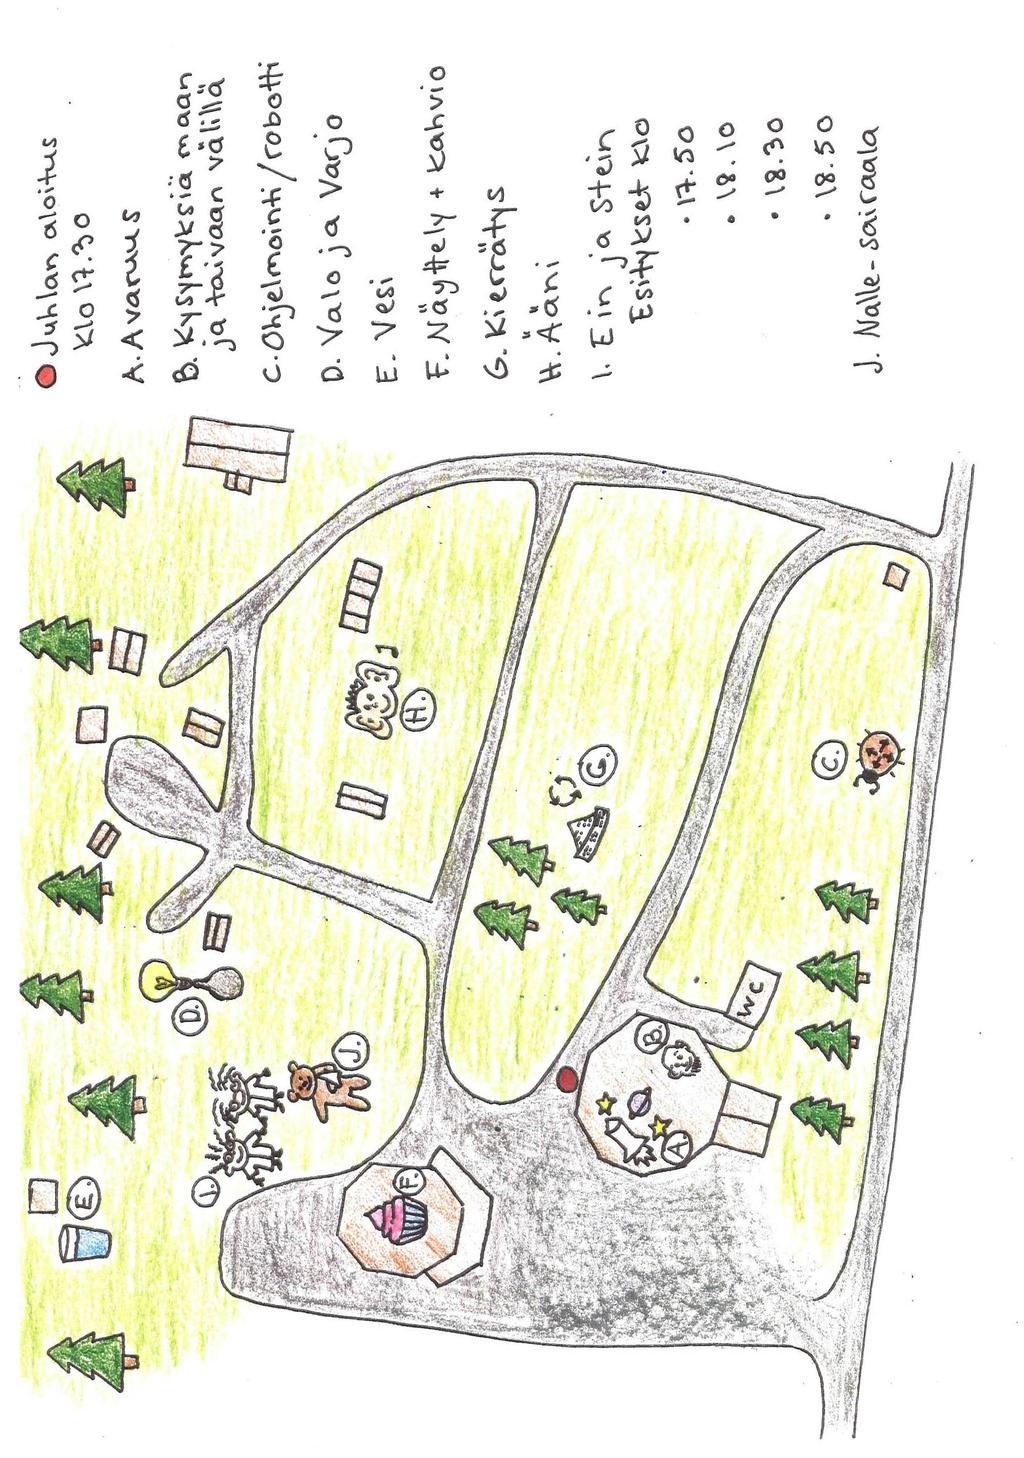 Juhlan aloitus
klo 17.30
A. Avaruus
B. Kysymyksiä maan
ja taivaan välillä
C. Ohjelmointi/robotti
D. Valo ja Varjo
E. Vesi
F. Näyttely + kahvio
G. Kierrätys
H. Ääni
I. Ein ja Stein
Esitykset klo
• 17.50
• 18.10
• 18.30
• 18.50
J. Nalle-sairaala
E.
D.
I.
J.
H.
F.
G.
B.
A.
WC
C.